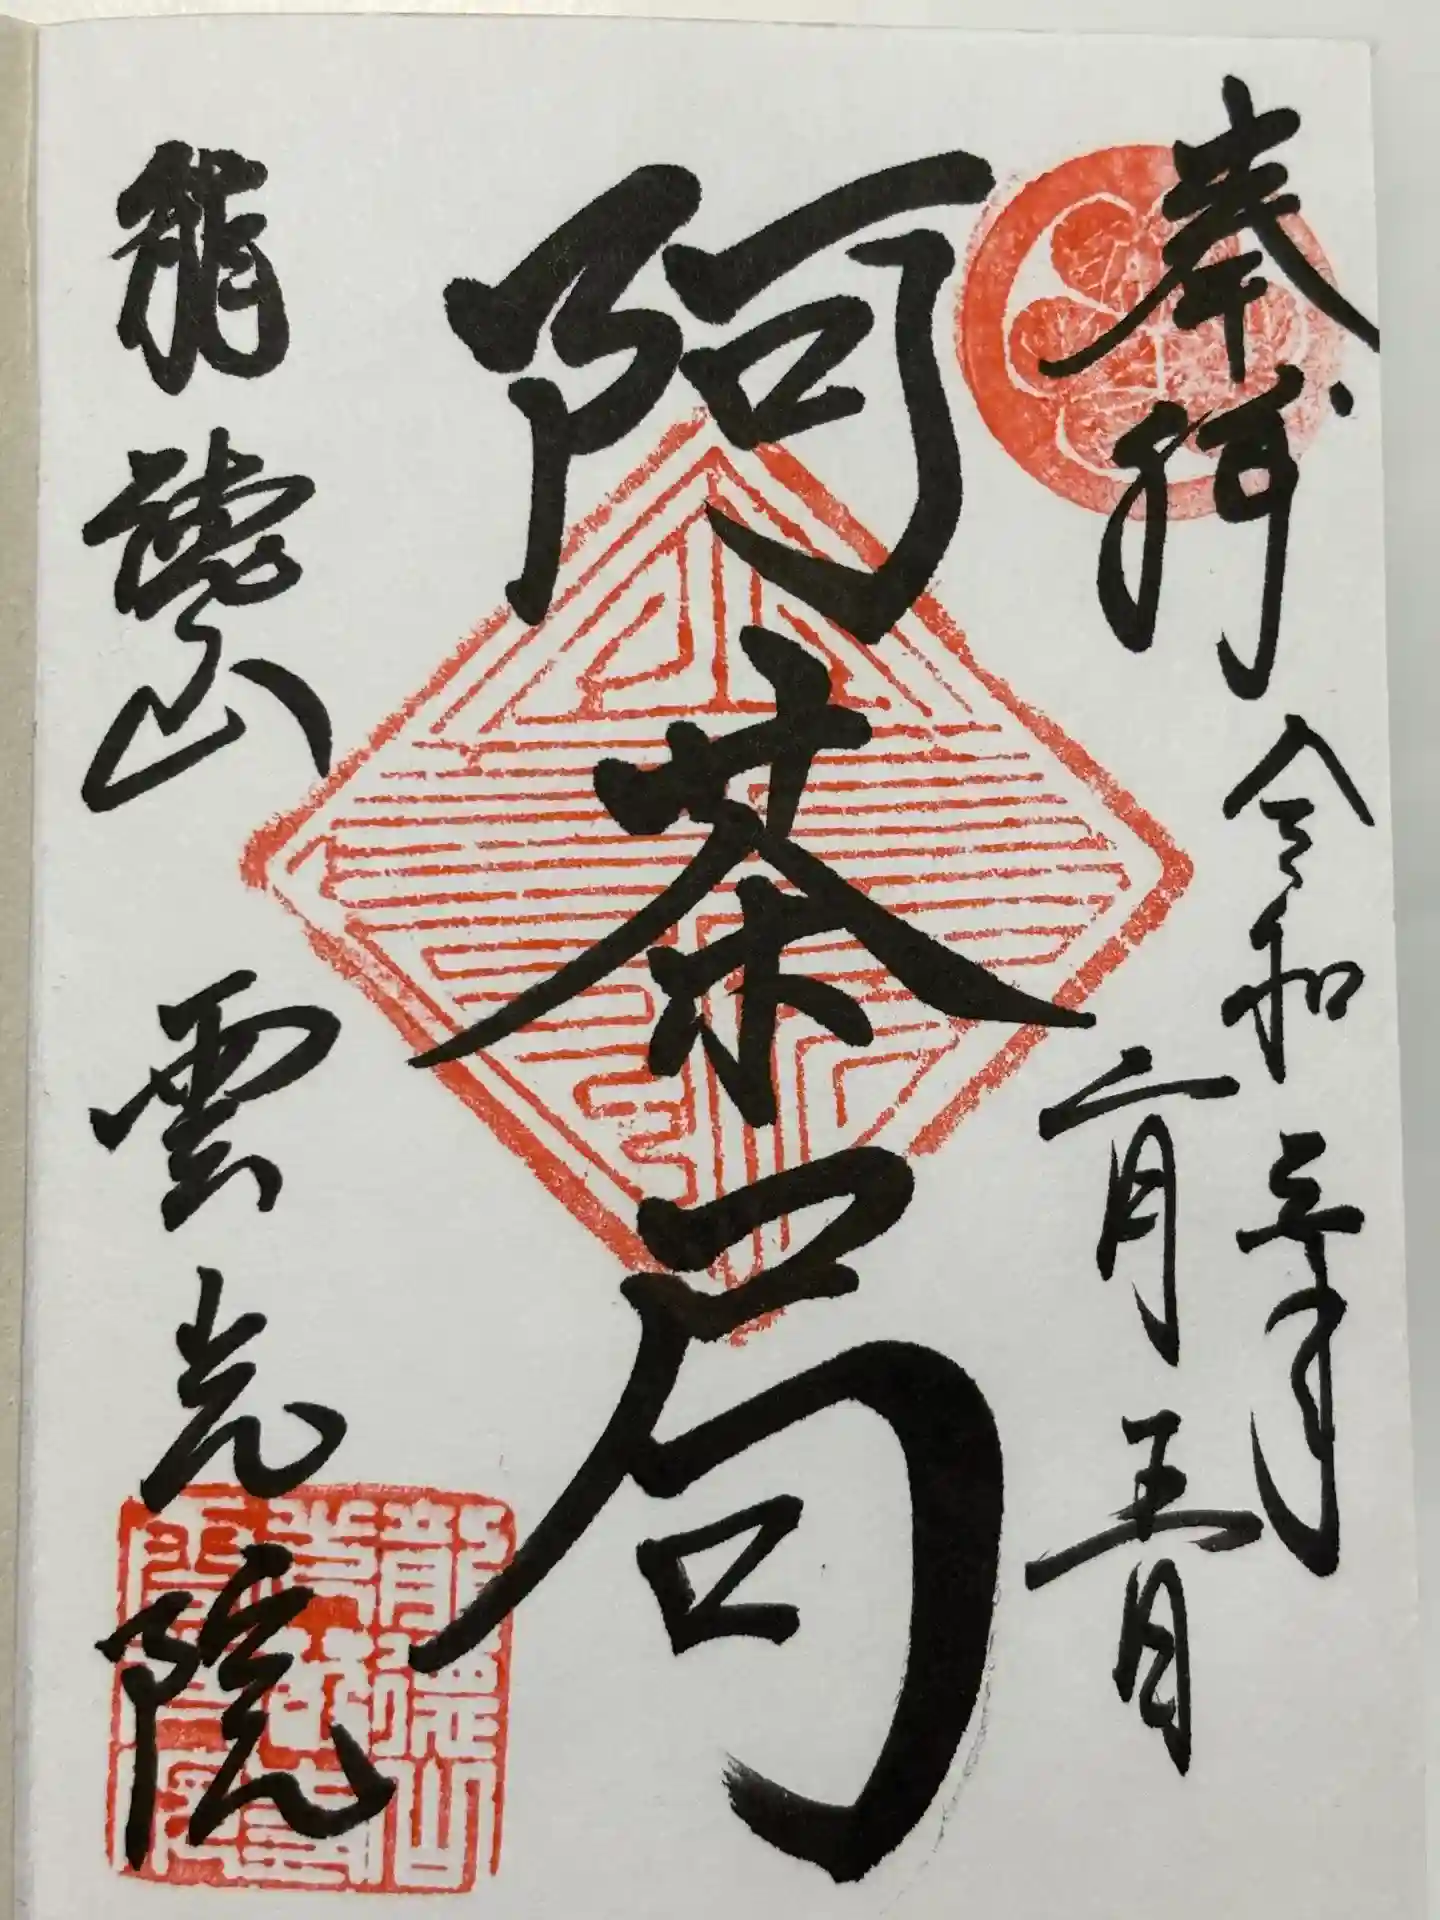 奉拝
令和三年
二月五日
阿茶局
龍徳山 雲光院
龍徳山
雲光院